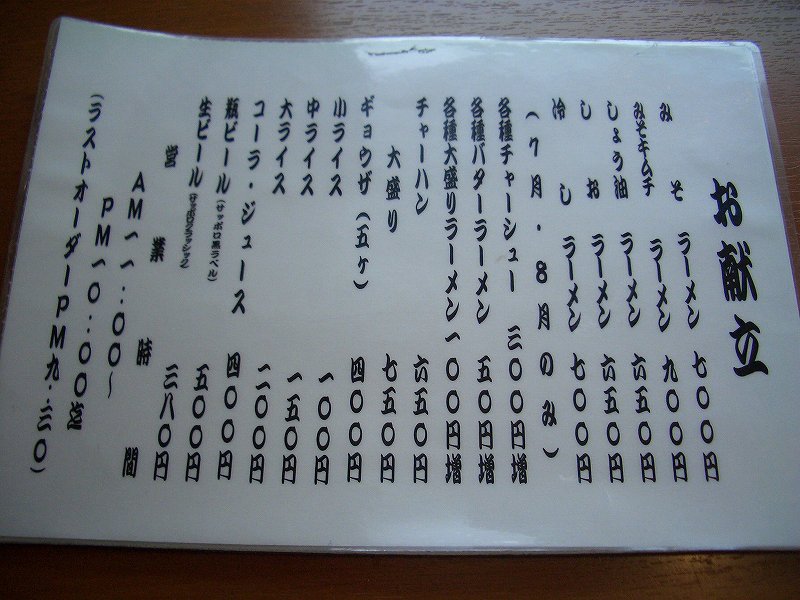 お献立
みそラーメン 七〇〇円
みそキムチラーメン 九〇〇円
しょう油ラーメン 六五〇円
しおラーメン 六五〇円
冷しラーメン 七〇〇円
(7月・8月のみ)
各種チャーシュー 三〇〇円増
各種バターラーメン 五〇円増
各種大盛りラーメン一〇〇円増
チャーハン 六五〇円
大盛り 七五〇円
ギョウザ(五ヶ) 四〇〇円
小ライス 一〇〇円
中ライス 一五〇円
大ライス 二〇〇円
コーラ・ジュース 四〇〇円
瓶ビール(サッポロ黒ラベル) 五〇〇円
生ビール(サッポロクラッシック) 三八〇円
営業時間
AM一一:〇〇〜
PM一〇:〇〇迄
(ラストオーダーPM九:三〇)